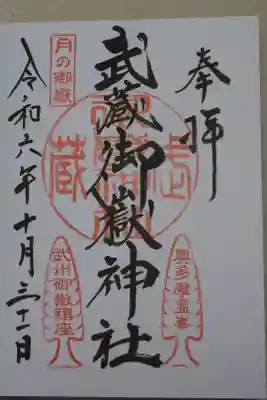 奉拝
武蔵御嶽神社
令和六年十月三十一日
月の御嶽
奥多摩霊峯
武州御嶽鎮座